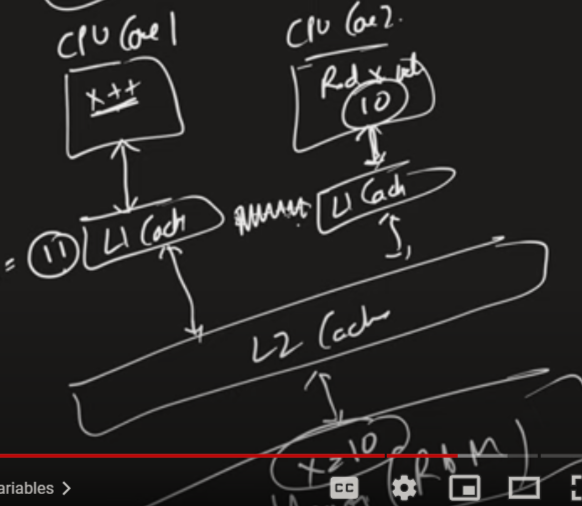 CPU Core 1
CPU Core 2.
x++
Rd x
10
11
L1 Cach
L1 Cach
L2 Cache
x = 10
(RAM)
ariables >
CC